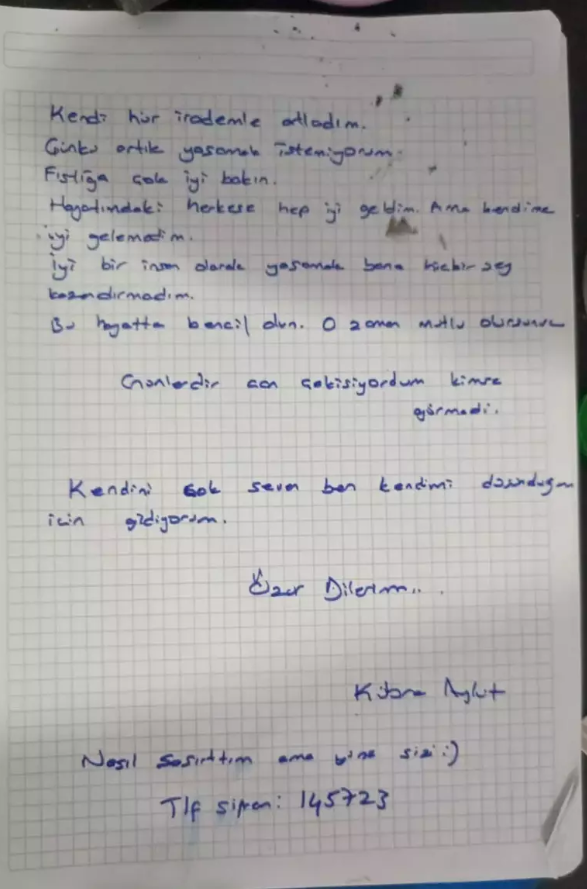 Kendi hür irademle atladım.
Çünkü artık yaşamak istemiyorum.
Fıstığa çok iyi bakın.
Hayatımdaki herkese hep iyi geldim. Ama kendime
iyi gelemedim.
İyi bir insan olarak yaşamak bana hiçbir şey
kazandırmadım.
Bu hayatta bencil olun. O zaman mutlu olursunuz
Günlerdir can çekişiyordum kimse
görmedi.
Kendini çok seven ben kendimi düşündüğüm
için gidiyorum.
Özür Dilerim..
Kübra Aylut
Nasıl şaşırttım ama yine sizi :)
Tlf şifren: 145723